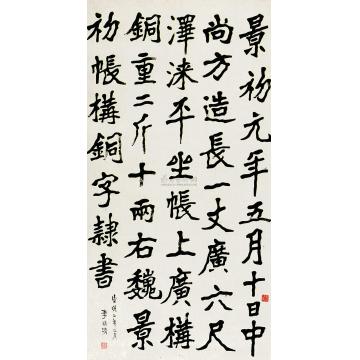 景初元年五月十日中
尚方造長一丈廣六尺
澤漆平坐帳上廣構
銅重二斤十兩右魏景
初帳構銅字隸書